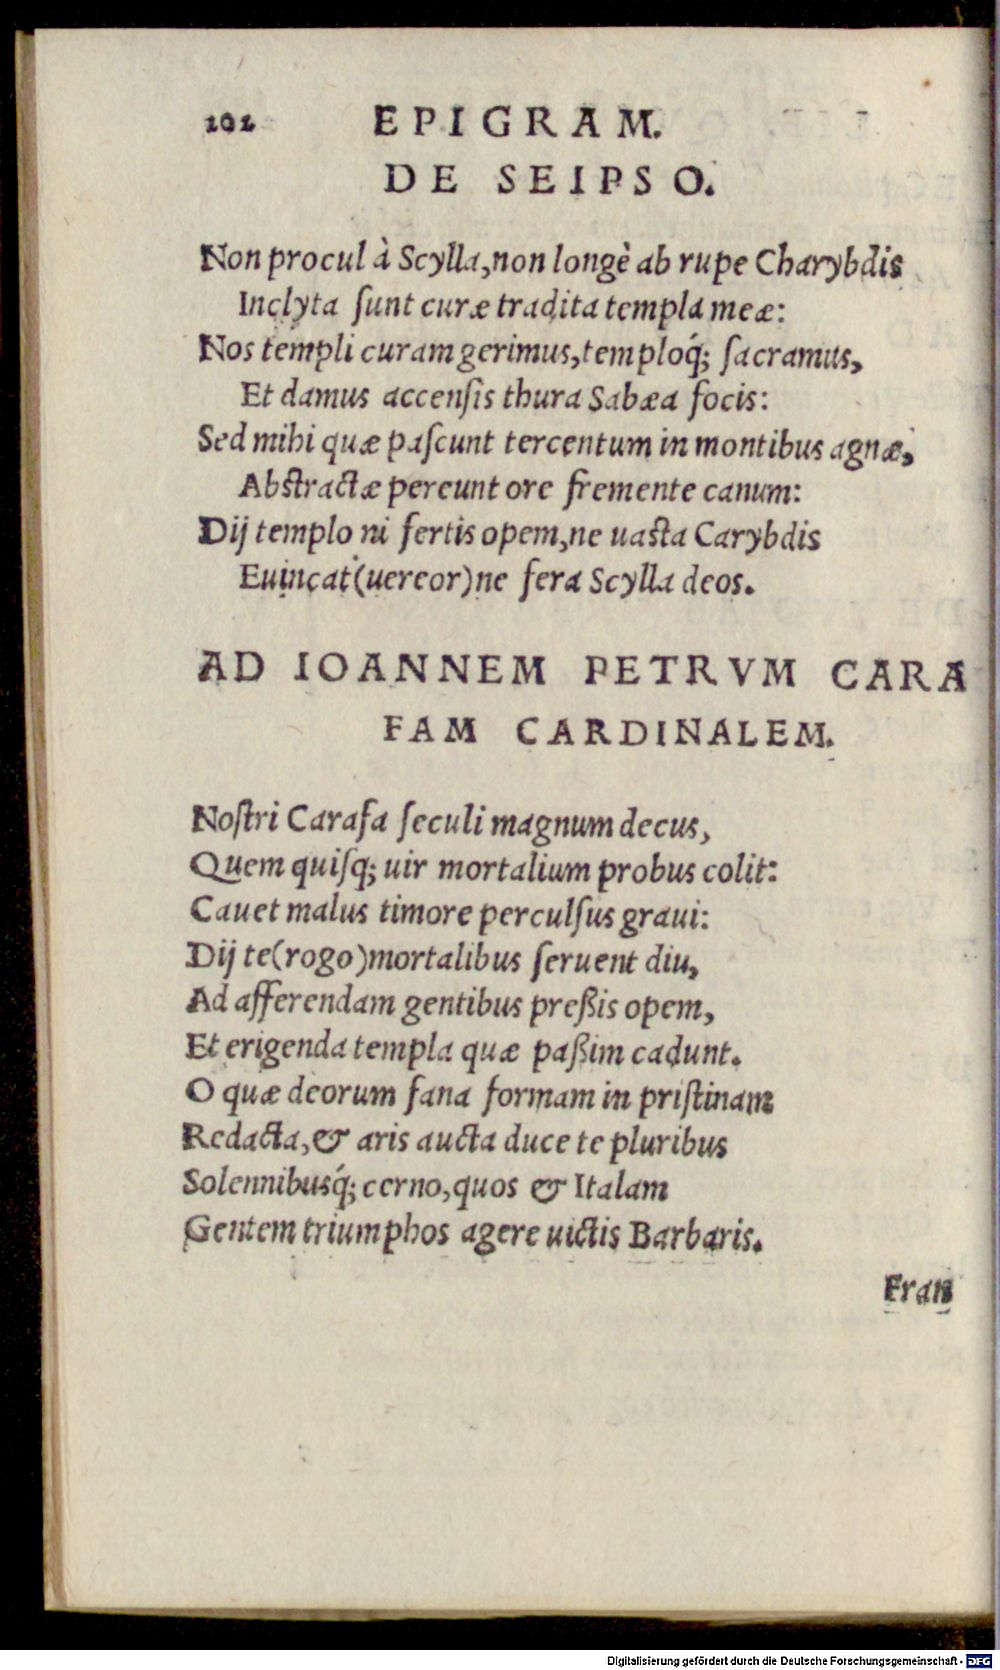 102 EPIGRAM.
DE SEIPSO.
Non procul à Scylla, non longè ab rupe Charybdis
Inclyta ſunt curæ tradita templa meæ:
Nos templi curam gerimus, temploq́; ſacramus,
Et damus accenſis thura Sabæa focis:
Sed mihi quæ paſcunt tercentum in montibus agnæ,
Abſtractæ pereunt ore fremente canum:
Dij templo ni fertis opem, ne uaſta Carybdis
Euincat (uereor) ne fera Scylla deos.
AD IOANNEM PETRVM CARA
FAM CARDINALEM.
Noſtri Carafa ſeculi magnum decus,
Quem quiſq; uir mortalium probus colit:
Cauet malus timore perculſus graui:
Dij te (rogo) mortalibus ſeruent diu,
Ad afferendam gentibus preßis opem,
Et erigenda templa quæ paßim cadunt.
O quæ deorum fana formam in priſtinam
Redacta, & aris aucta duce te pluribus
Solennibusq́; cerno, quos & Italam
Gentem triumphos agere uictis Barbaris.
Fran
Digitalisierung gefördert durch die Deutsche Forschungsgemeinschaft - DFG